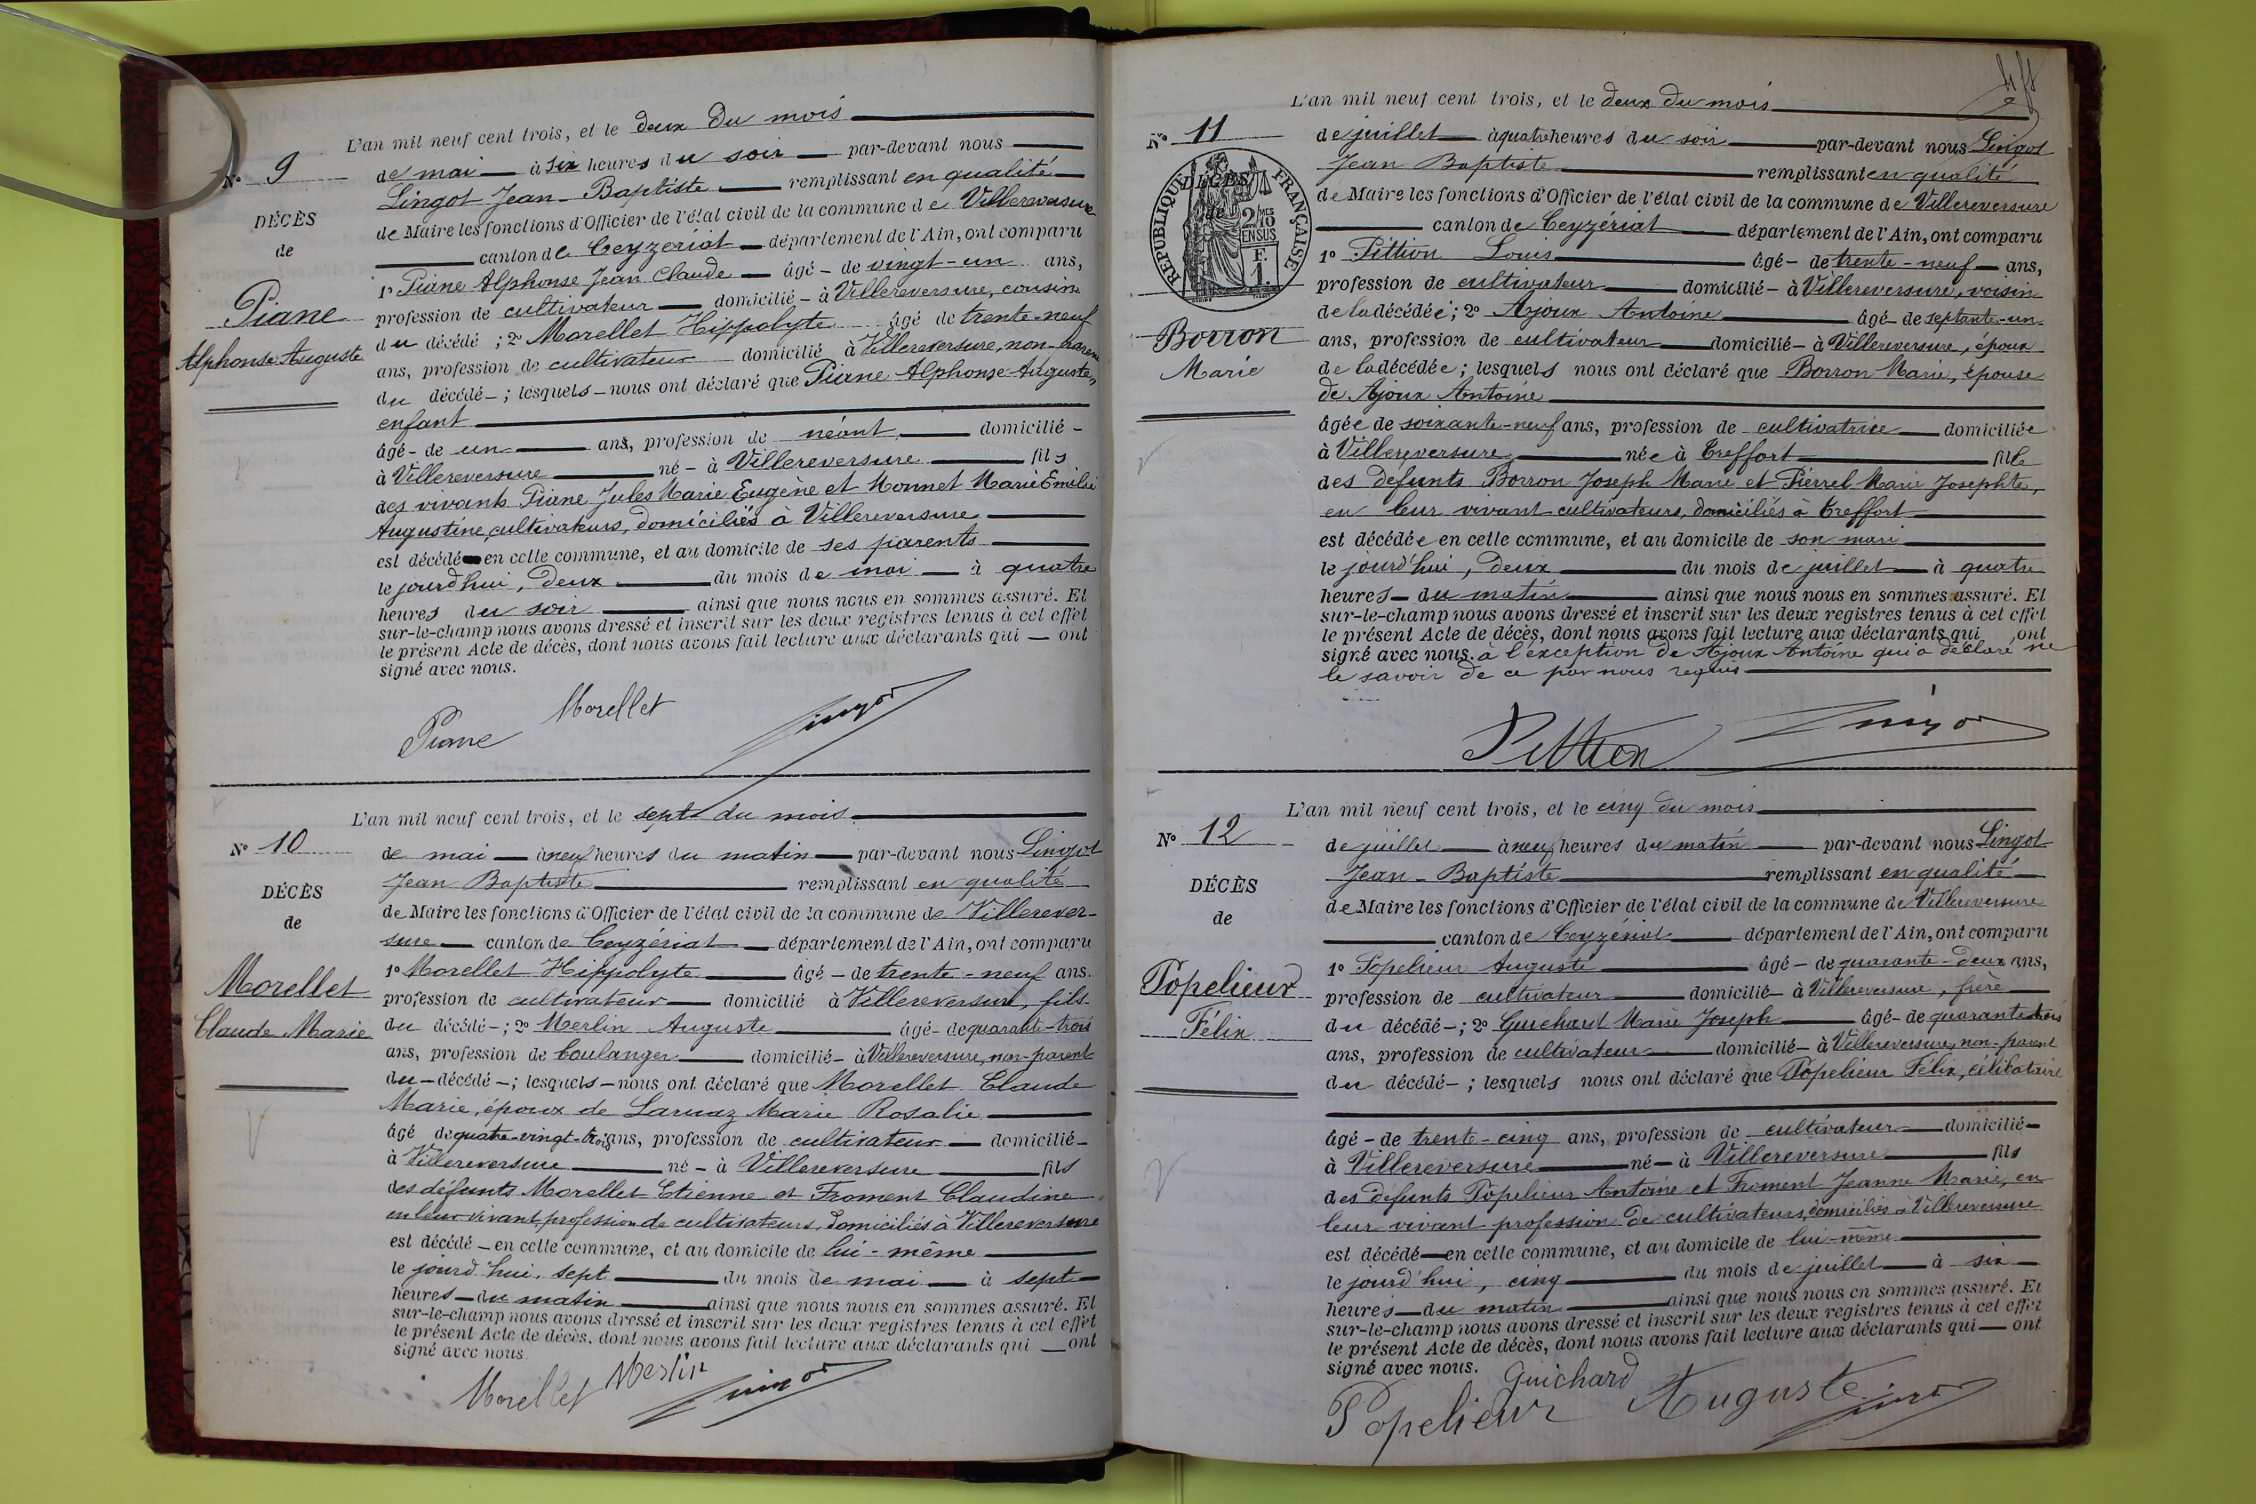 L'an mil neuf cent trois, et le deux du mois
N° 9
de mai à six heures du soir par-devant nous
Lingot Jean-Baptiste remplissant en qualité
DÉCÈS
de Maire les fonctions d'Officier de l'état civil de la commune de Villereversure
de
canton de Ceyzériat département de l'Ain, ont comparu
1° Piane Alphonse Jean Claude âgé - de vingt-un ans,
Piane
profession de cultivateur domicilié - à Villereversure, cousin
Alphonse Auguste
du décédé ; 2° Morellet Hippolyte âgé de trente-neuf
ans, profession de cultivateur domicilié à Villereversure, non-parent
du décédé - ; lesquels - nous ont déclaré que Piane Alphonse Auguste,
enfant
âgé - de un ans, profession de néant domicilié -
à Villereversure né - à Villereversure fils
des vivants Piane Jules Marie Eugène et Monnet Marie Emilie
Augustine, cultivateurs, domiciliés à Villereversure
est décédé en cette commune, et au domicile de ses parents
le jourd'hui, deux du mois de mai à quatre
heures du soir ainsi que nous nous en sommes assuré. Et
sur-le-champ nous avons dressé et inscrit sur les deux registres tenus à cet effet
le présent Acte de décès, dont nous avons fait lecture aux déclarants qui ont
signé avec nous.
Piane Morellet Lingot
L'an mil neuf cent trois, et le sept du mois
N° 10
de mai à neuf heures du matin par-devant nous Lingot
Jean Baptiste remplissant en qualité
DÉCÈS
de Maire les fonctions d'Officier de l'état civil de la commune de Villerever-
de
sure canton de Ceyzériat département de l'Ain, ont comparu
Morellet
1° Morellet Hippolyte âgé - de trente-neuf ans.
profession de cultivateur domicilié à Villereversure, fils
Claude Marie
du décédé - ; 2° Merlin Auguste âgé - de quarante-trois
ans, profession de boulanger domicilié - à Villereversure, non-parent
du - décédé - ; lesquels - nous ont déclaré que Morellet Claude
Marie, époux de Larnaz Marie Rosalie
âgé de quatre-vingt-trois ans, profession de cultivateur domicilié -
à Villereversure né - à Villereversure fils
des défunts Morellet Etienne et Froment Claudine
en leur vivant profession de cultivateurs, domiciliés à Villereversure
est décédé - en cette commune, et au domicile de lui-même
le jourd'hui, sept du mois de mai à sept
heures du matin ainsi que nous nous en sommes assuré. Et
sur-le-champ nous avons dressé et inscrit sur les deux registres tenus à cet effet
le présent Acte de décès, dont nous avons fait lecture aux déclarants qui ont
signé avec nous
Morellet Merlin Lingot
L'an mil neuf cent trois, et le deux du mois
N° 11
de juillet à quatre heures du soir par-devant nous Lingot
Jean Baptiste remplissant en qualité
RÉPUBLIQUE FRANÇAISE
DÉCÈS
de
2/10 MES
EN SUS
F.
1.
de Maire les fonctions d'Officier de l'état civil de la commune de Villereversure
canton de Ceyzériat département de l'Ain, ont comparu
1° Pittion Louis âgé - de trente-neuf ans,
profession de cultivateur domicilié - à Villereversure, voisin
de la décédée ; 2° Ajoux Antoine âgé - de septante-un
Borron
ans, profession de cultivateur domicilié - à Villereversure, époux
Marie
de la décédée ; lesquels nous ont déclaré que Borron Marie, épouse
de Ajoux Antoine
âgée de soixante-neuf ans, profession de cultivatrice domiciliée
à Villereversure née à Treffort fille
des défunts Borron Joseph Marie et Pierrel Marie Josephte,
en leur vivant cultivateurs, domiciliés à Treffort
est décédée en cette commune, et au domicile de son mari
le jourd'hui, deux du mois de juillet à quatre
heures - du matin ainsi que nous nous en sommes assuré. Et
sur-le-champ nous avons dressé et inscrit sur les deux registres tenus à cet effet
le présent Acte de décès, dont nous avons fait lecture aux déclarants qui ont
signé avec nous. à l'exception de Ajoux Antoine qui a déclaré ne
le savoir de ce par nous requis
Pittion Lingot
L'an mil neuf cent trois, et le cinq du mois
N° 12
de juillet à neuf heures du matin par-devant nous Lingot
Jean-Baptiste remplissant en qualité
DÉCÈS
de Maire les fonctions d'Officier de l'état civil de la commune de Villereversure
de
canton de Ceyzériat département de l'Ain, ont comparu
1° Popelieur Auguste âgé - de quarante-deux ans,
Popelieur
profession de cultivateur domicilié - à Villereversure, frère
Félix
du décédé - ; 2° Guichard Marie Joseph âgé - de quarante-trois
ans, profession de cultivateur domicilié - à Villereversure, non-parent
du décédé - ; lesquels nous ont déclaré que Popelieur Félix, célibataire
âgé - de trente-cinq ans, profession de cultivateur domicilié -
à Villereversure né - à Villereversure fils
des défunts Popelieur Antoine et Froment Jeanne Marie, en
leur vivant profession de cultivateurs, domiciliés à Villereversure
est décédé en cette commune, et au domicile de lui-même
le jourd'hui, cinq du mois de juillet à six
heures du matin ainsi que nous nous en sommes assuré. Et
sur-le-champ nous avons dressé et inscrit sur les deux registres tenus à cet effet
le présent Acte de décès, dont nous avons fait lecture aux déclarants qui ont
signé avec nous. Guichard
Popelieur Auguste Lingot